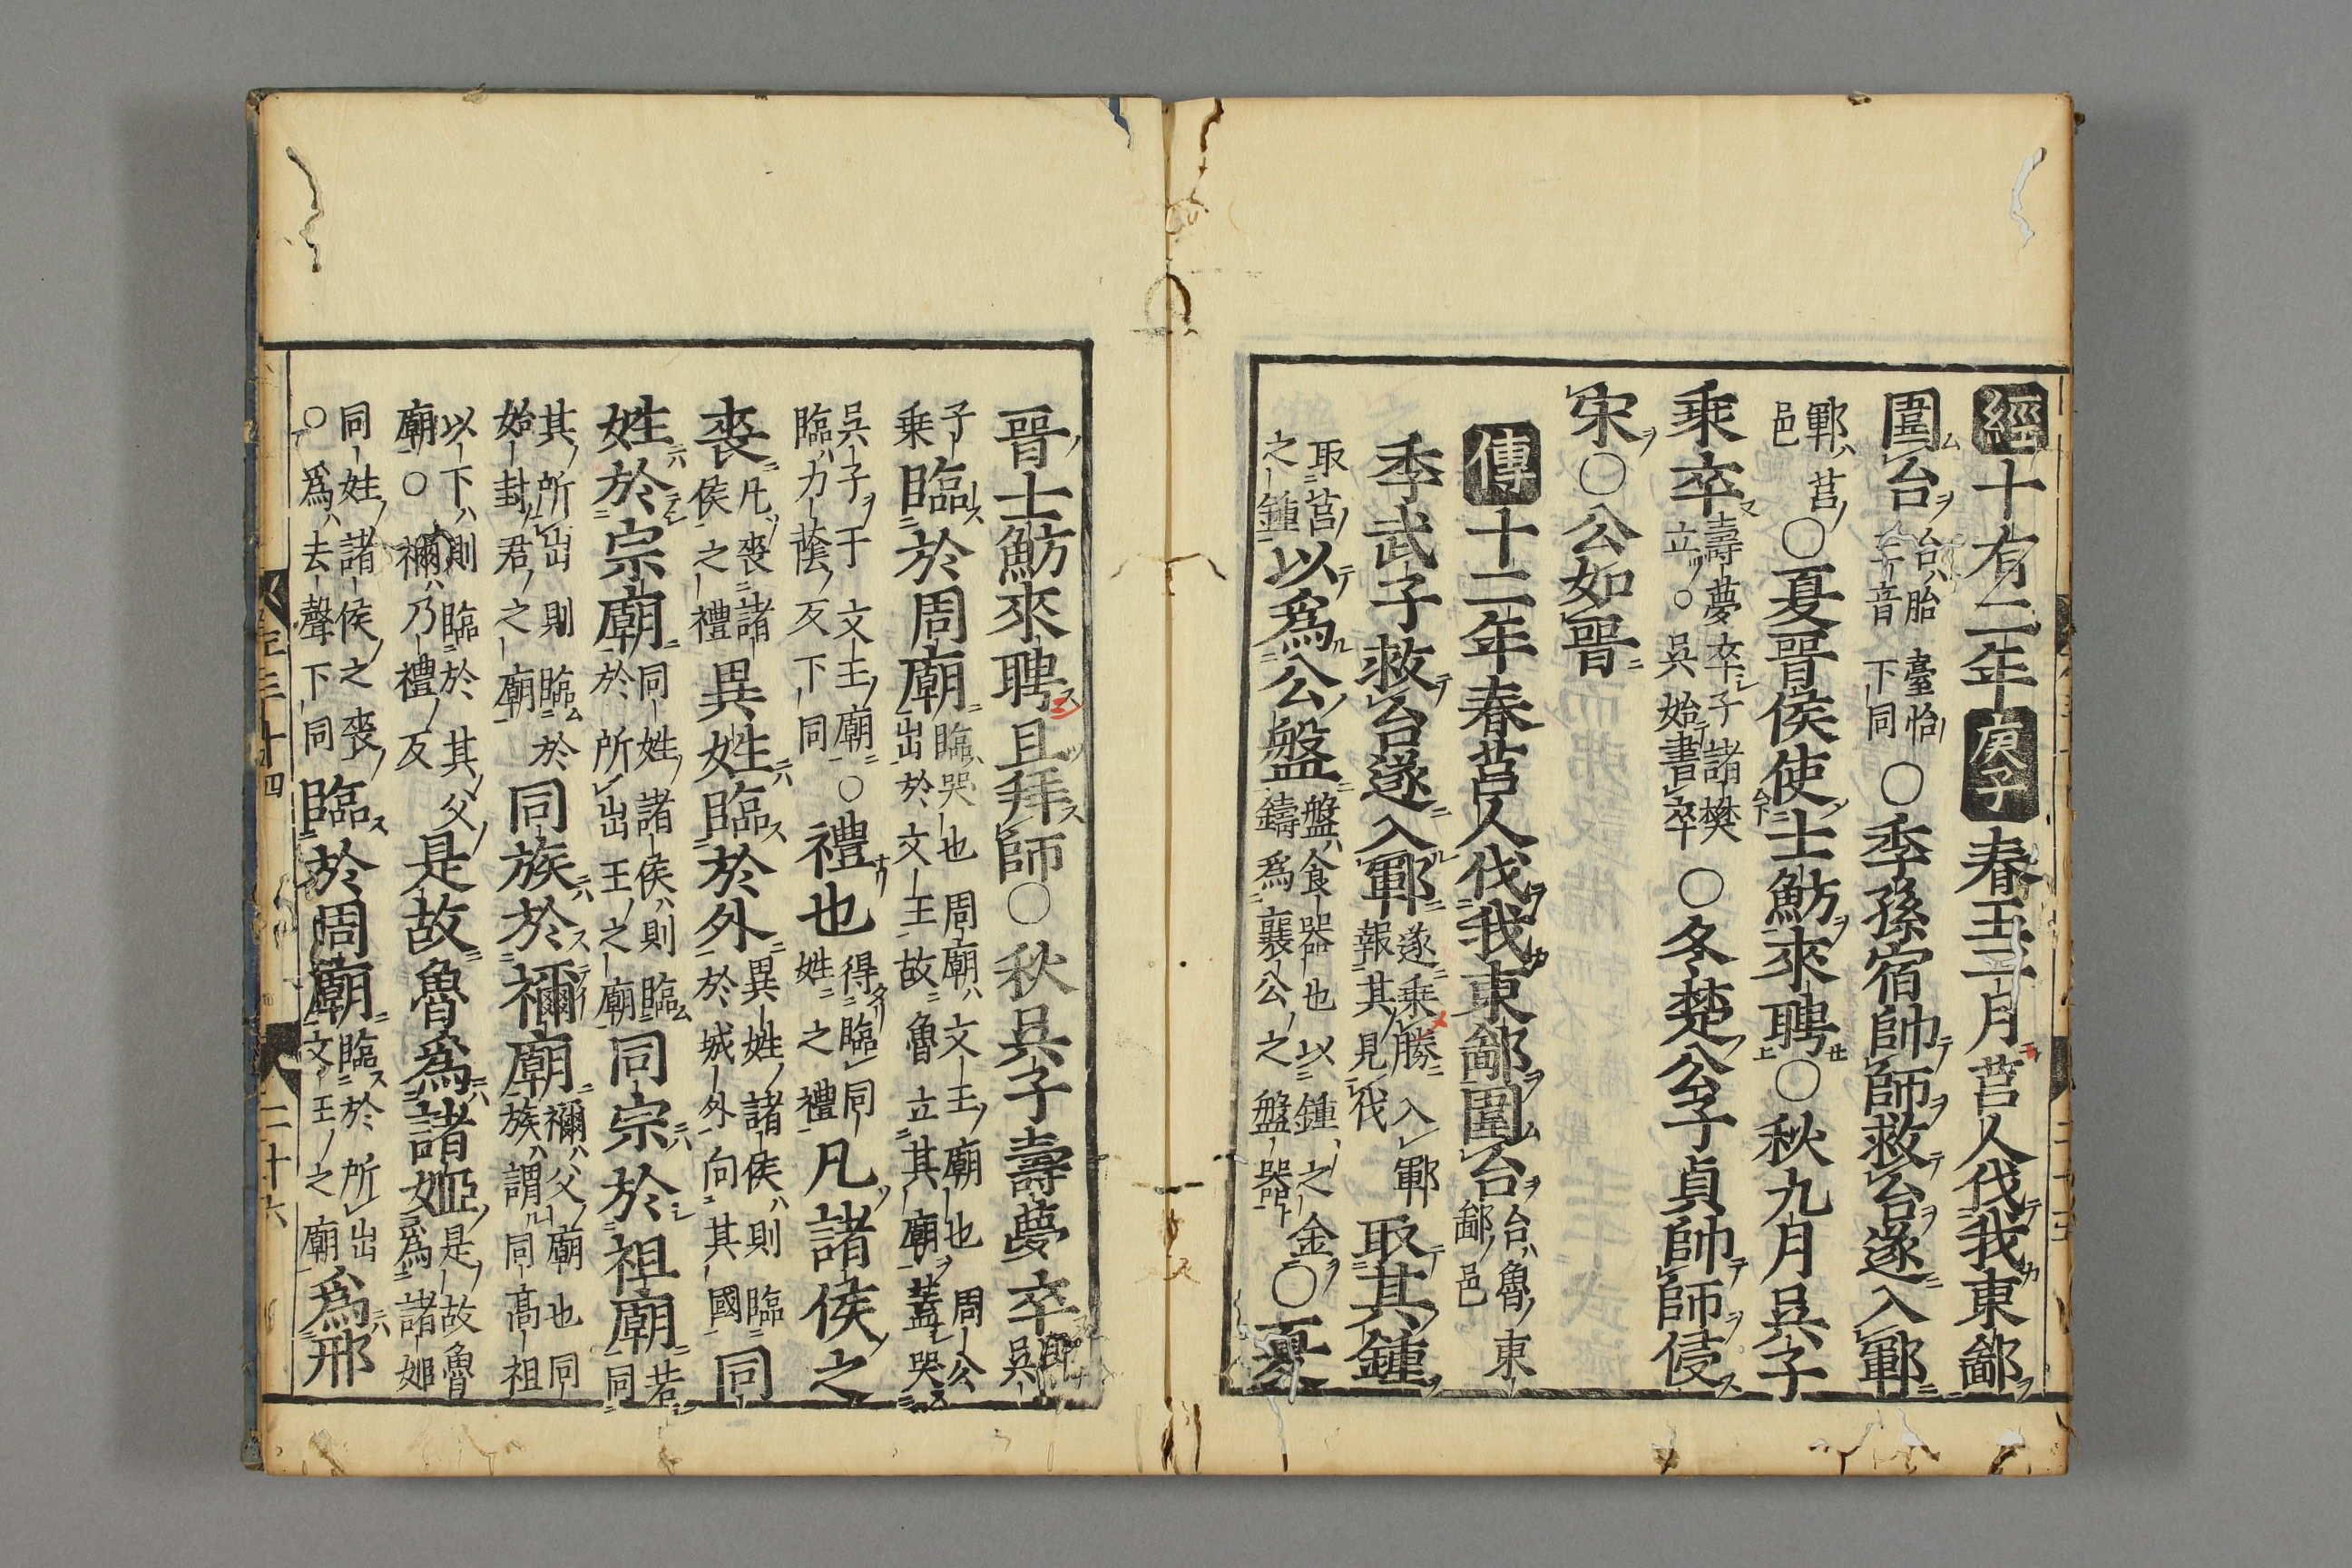 經十有二年庚子春王二月莒人伐我東鄙
圍台台胎臺怡二音下同○季孫宿帥師救台遂入鄆
鄆莒邑○夏晉侯使士魴來聘○秋九月吳子
乘卒壽夢卒子諸樊立○吳始書卒○冬楚公子貞帥師侵
宋○公如晉
傳十二年春莒人伐我東鄙圍台台魯東鄙邑
季武子救台遂入鄆遂乘勝入鄆報其見伐取其鍾
取莒之鍾以爲公盤盤食器也以鍾之金鑄爲襄公之盤器○夏
晉士魴來聘且拜師○秋吳子壽夢卒吳
子乘臨於周廟臨哭也周廟文王廟也周公出於文王故魯立其廟蓋哭
吳子于文王廟○臨力蔭反下同禮也得臨同姓之禮凡諸侯之
喪凡喪諸侯之禮異姓臨於外異姓諸侯則臨於城外向其國同
姓於宗廟同姓諸侯則臨於所出王之廟同宗於祖廟若同
其所出則臨於始封君之廟同族於禰廟禰父廟也同族謂同高祖
以下則臨於其父廟○禰乃禮反是故魯爲諸姬是故魯爲諸姬
同姓諸侯之喪○爲去聲下同臨於周廟臨於所出文王之廟爲邢
二十六